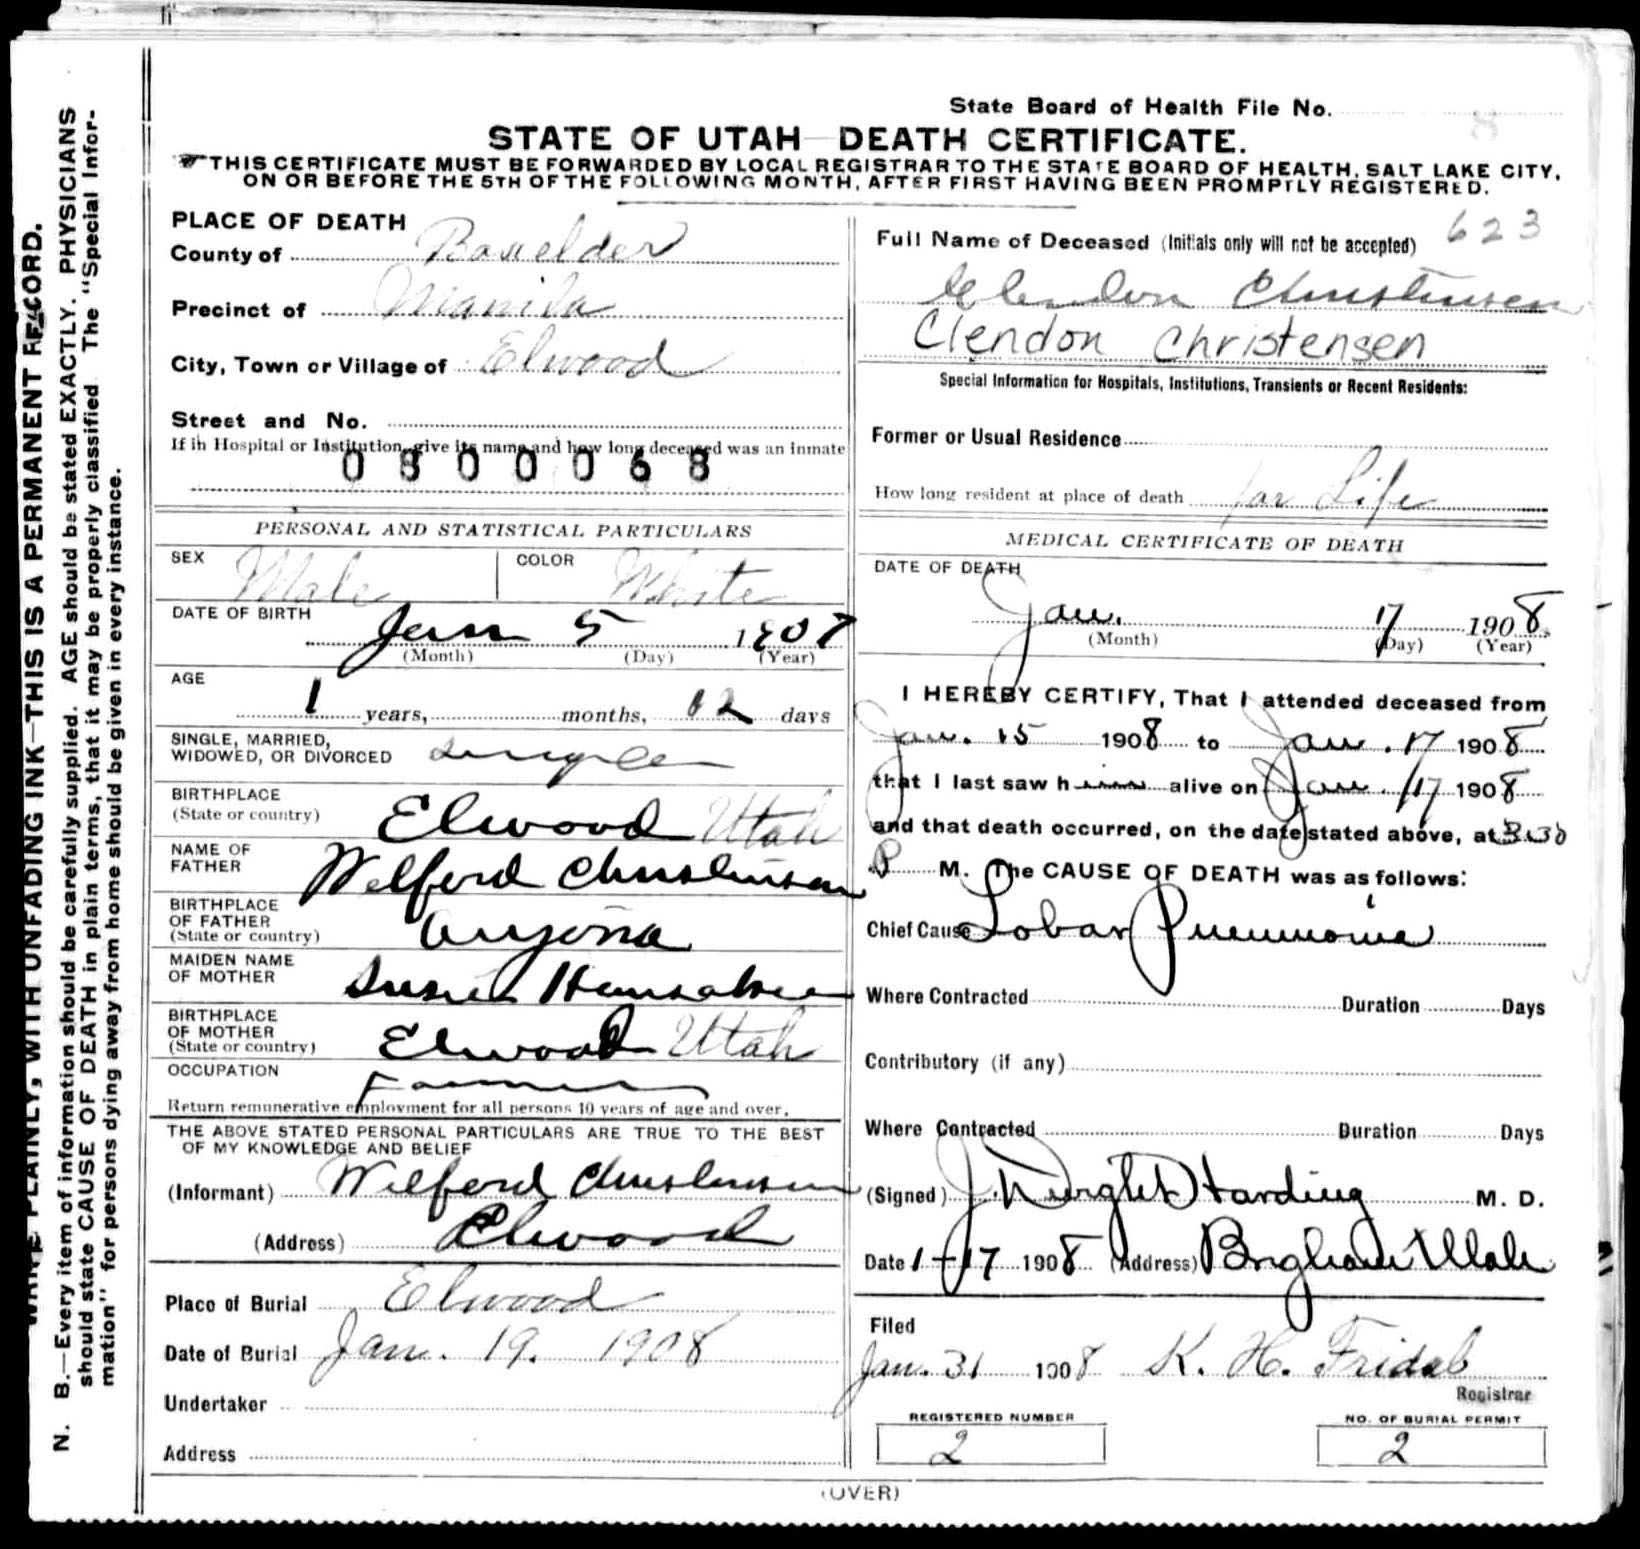 State Board of Health File No.
8
STATE OF UTAH—DEATH CERTIFICATE.
THIS CERTIFICATE MUST BE FORWARDED BY LOCAL REGISTRAR TO THE STATE BOARD OF HEALTH, SALT LAKE CITY,
ON OR BEFORE THE 5TH OF THE FOLLOWING MONTH, AFTER FIRST HAVING BEEN PROMPTLY REGISTERED.
WRITE PLAINLY, WITH UNFADING INK—THIS IS A PERMANENT RECORD.
N. B.—Every item of information should be carefully supplied. AGE should be stated EXACTLY. PHYSICIANS
should state CAUSE OF DEATH in plain terms, that it may be properly classified The "Special Infor-
mation" for persons dying away from home should be given in every instance.
PLACE OF DEATH
County of Boxelder
Precinct of Manila
City, Town or Village of Elwood
Street and No.
If in Hospital or Institution, give its name and how long deceased was an inmate
0800068
PERSONAL AND STATISTICAL PARTICULARS
SEX Male COLOR White
DATE OF BIRTH Jan 5 1907
(Month) (Day) (Year)
AGE
1 years, months, 12 days
SINGLE, MARRIED,
WIDOWED, OR DIVORCED single
BIRTHPLACE
(State or country) Elwood Utah
NAME OF
FATHER Welford Christensen
BIRTHPLACE
OF FATHER
(State or country)
MAIDEN NAME
OF MOTHER Susie Hunsaker
BIRTHPLACE
OF MOTHER
(State or country) Elwood Utah
OCCUPATION Farmer
Return remunerative employment for all persons 10 years of age and over.
THE ABOVE STATED PERSONAL PARTICULARS ARE TRUE TO THE BEST
OF MY KNOWLEDGE AND BELIEF
(Informant) Welford Christensen
(Address) Elwood
Place of Burial Elwood
Date of Burial Jan. 19. 1908
Undertaker
Address
623
Full Name of Deceased (Initials only will not be accepted)
Clendon Christensen
Clendon Christensen
Special Information for Hospitals, Institutions, Transients or Recent Residents:
Former or Usual Residence
How long resident at place of death for Life
MEDICAL CERTIFICATE OF DEATH
DATE OF DEATH
Jan. 17 1908.
(Month) (Day) (Year)
I HEREBY CERTIFY, That I attended deceased from
Jan. 15 1908 to Jan. 17 1908
that I last saw him alive on Jan. 17 1908
and that death occurred, on the date stated above, at 3.30
P M. The CAUSE OF DEATH was as follows:
Chief Cause Lobar Pneumonia
Where Contracted Duration Days
Contributory (if any)
Where Contracted Duration Days
(Signed) J Dwight Harding M. D.
Date 1-17 1908 (Address) Brigham Utah
Filed
Jan. 31 1908 K. H. Fridal
Registrar
REGISTERED NUMBER
2
NO. OF BURIAL PERMIT
2
(OVER)